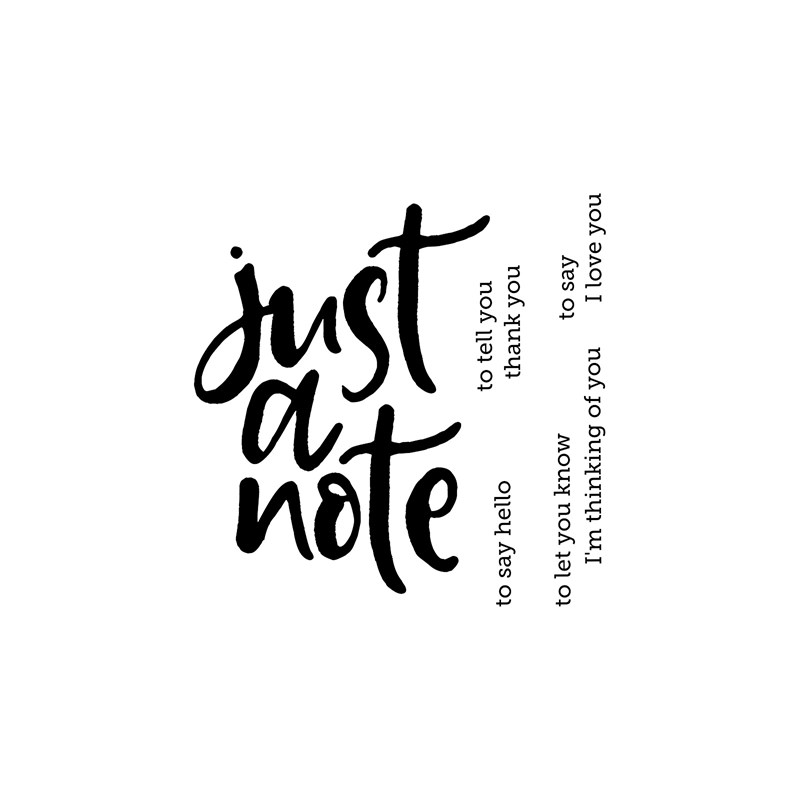 just
a
note
to say hello
to tell you
thank you
to let you know
I'm thinking of you
to say
I love you